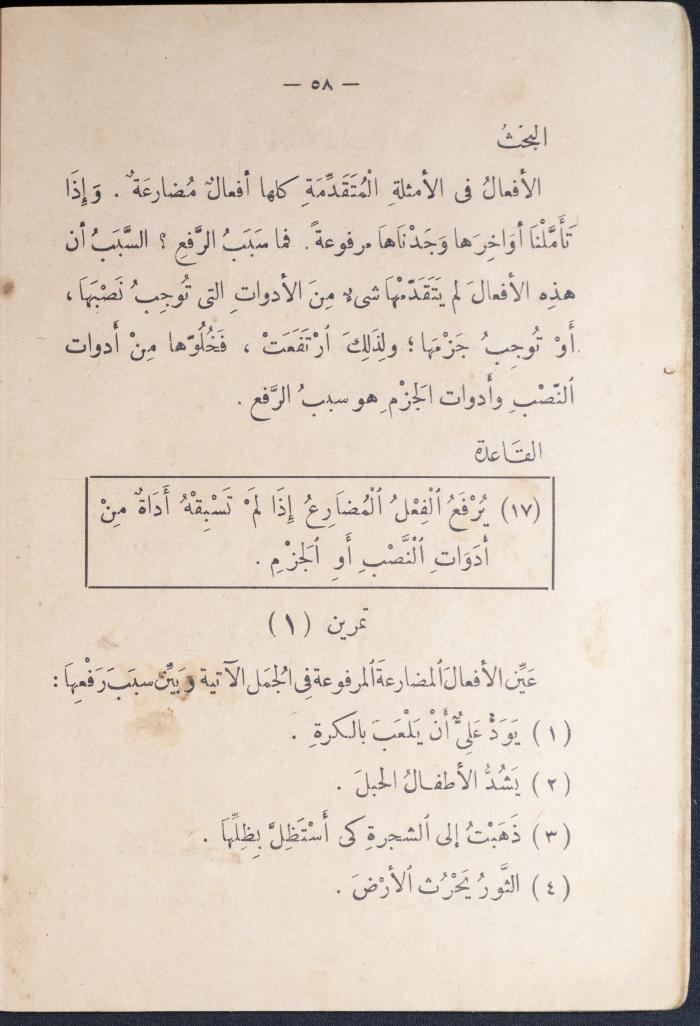 — ٥٨ —
البَحْثُ
الأفعالُ فى الأمثلةِ الْمُتَقَدِّمَةِ كلها أفعالٌ مُضارعَةٌ . وَإِذَا
تَأَمَّلْنَا أوَاخِرَها وَجَدْنَاهَا مرفوعةً . فما سَبَبُ الرَّفعِ ؟ السَّبَبُ أن
هذِهِ الأفعالَ لم يَتَقَدَّمْهَا شىءٌ مِنَ الأدواتِ التى تُوجِبُ نَصْبَهَا ،
أَوْ تُوجِبُ جَزْمَهَا ؛ ولِذَلِكَ ٱرْتَفَعَتْ ، فَخُلُوّها مِنْ أَدوات
ٱلنّصْبِ وأَدوات الجزْمِ هو سببُ الرَّفع .
القَاعدة
(١٧) يُرْفَعُ ٱلْفِعْلُ ٱلْمُضَارِعُ إِذَا لَمْ تَسْبِقْهُ أَدَاةٌ مِنْ
أَدَوَاتِ ٱلنَّصْبِ أَوِ ٱلجَزْمِ .
تمرين (١)
عَيِّن الأفعالَ ٱلمضارعةَ ٱلمرفوعة فِى الجُمَل الآتية وَبَيِّنْ سبَبَ رَفْعِهَا :
(١) يَوَدُّ عَلِىٌّ أَنْ يَلْعَبَ بالكرةِ .
(٢) يَشُدُّ الأطفـالُ الحبلَ .
(٣) ذَهَبْتُ إلى ٱلشجرةِ كى أَسْتَظِلَّ بِظِلِّهَا .
(٤) الثَّورُ يَحْرُث ٱلأرْضَ .